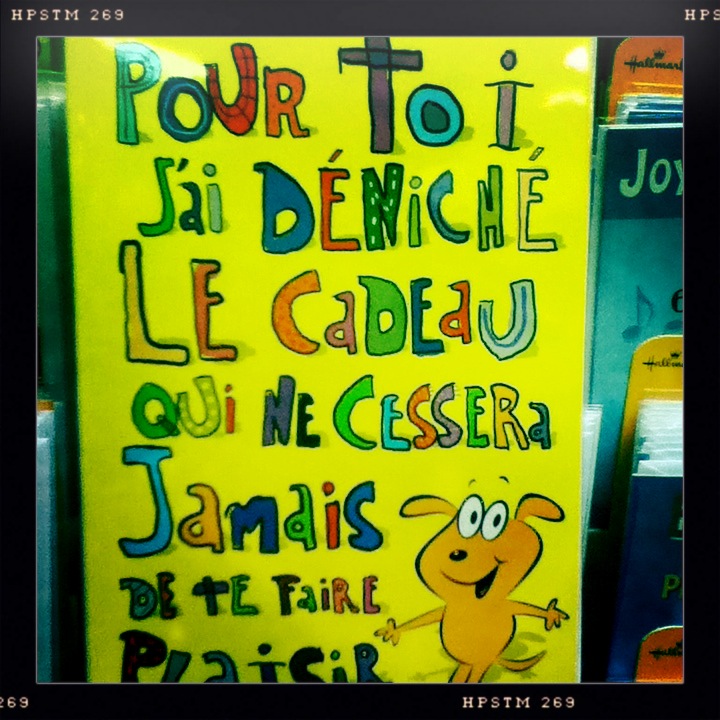 HPSTM 269
POUR Toi
J'ai DÉNiCHÉ
LE CaDEaU
QUi NE CESSERa
Jamais
DE tE FaiRE
PLaisiR
Hallmark
JOY
Hallmark
Hallmark
HPSTM 269